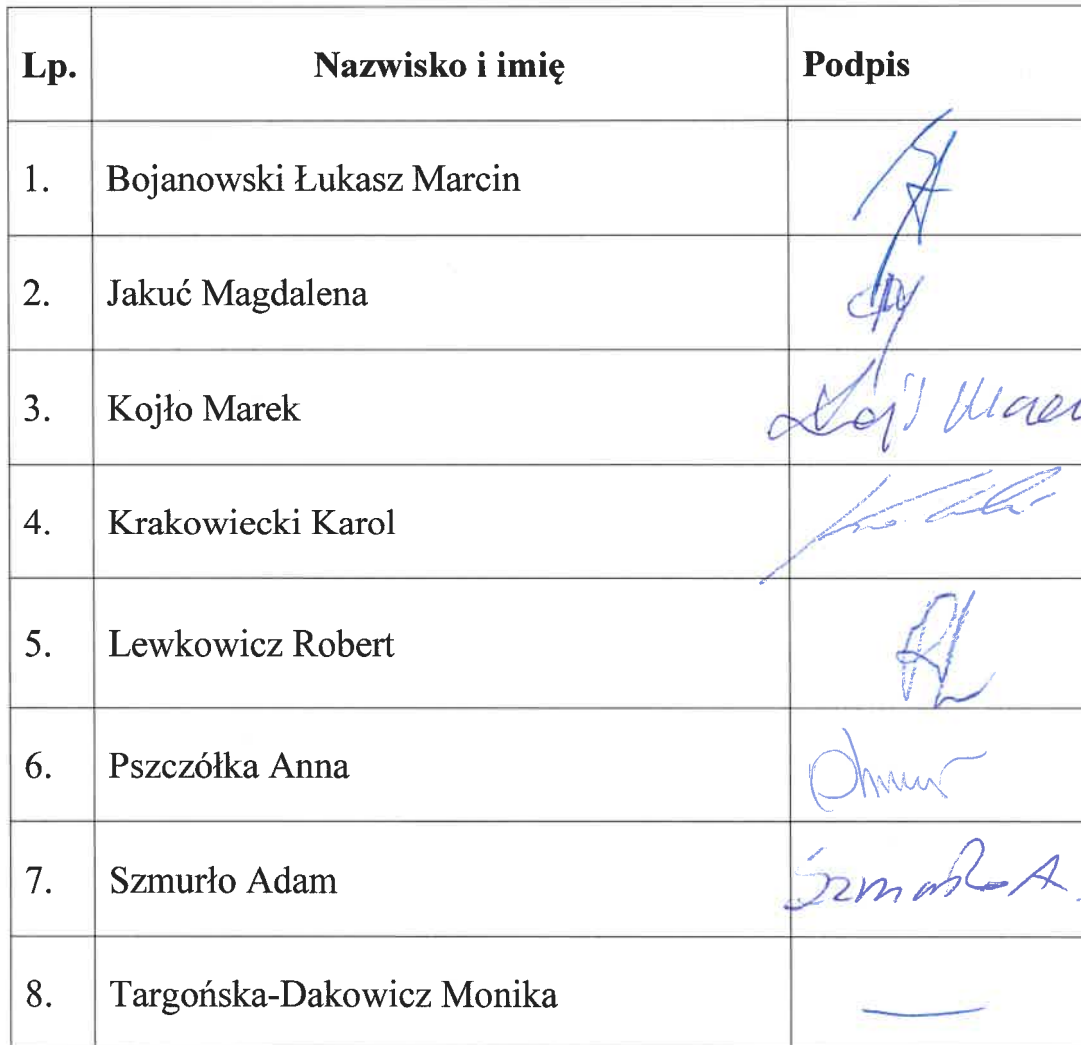 Lp. Nazwisko i imię Podpis
1. Bojanowski Łukasz Marcin
2. Jakuć Magdalena
3. Kojło Marek
4. Krakowiecki Karol
5. Lewkowicz Robert
6. Pszczółka Anna
7. Szmurło Adam
8. Targońska-Dakowicz Monika